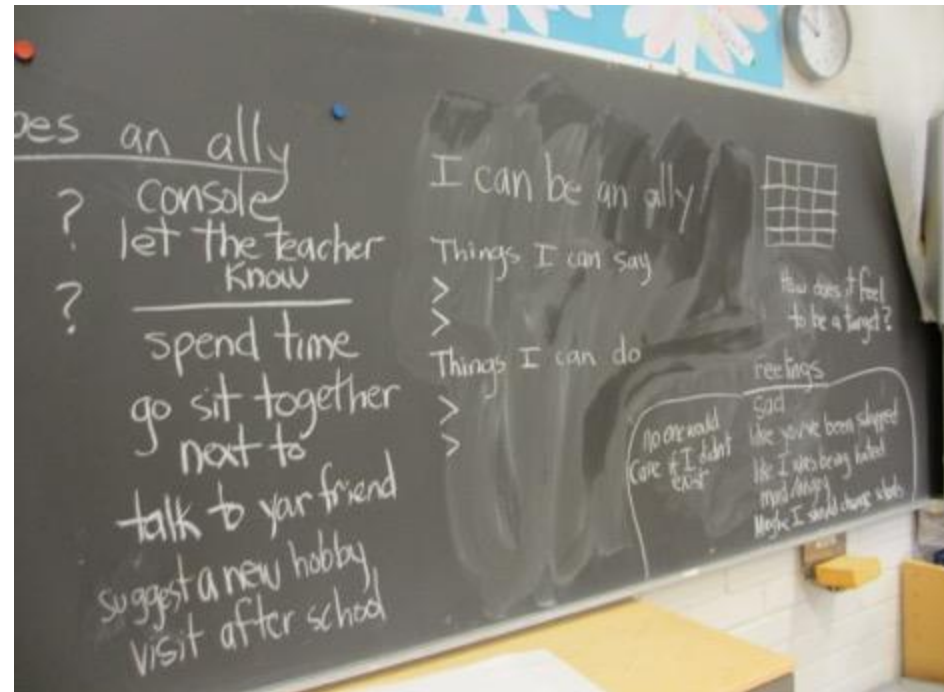 oes an ally
?
console
let the teacher
know
?
spend time
go sit together
next to
talk to your friend
suggest a new hobby,
visit after school
I can be an ally
Things I can say
>
>
Things I can do
>
>
How does it feel
to be a target?
reetings
sad
like you've been slapped
like I was being hated
mad/angry
Maybe I should change schools
no one would
care if I didn't
exist